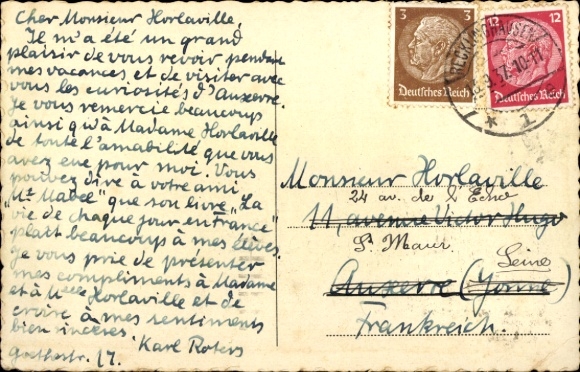 Cher Monsieur Horlaville,
Il m'a été un grand
plaisir de vous revoir pendant
mes vacances, et de visiter avec
vous les curiosités d'Auxerre.
Je vous remercie beaucoup
ainsi qu'à Madame Horlaville
de toute l'amabilité que vous
avez eue pour moi. Vous
pouvez dire à votre ami
"Mr Mabel" que son livre "La
vie de chaque jour en France"
plaît beaucoup à mes élèves.
Je vous prie de présenter
mes compliments à Madame
et à Melle Horlaville et de
croire à mes sentiments
bien sincères. Karl Roters
Goethestr. 17.
3 3
Deutsches Reich
12 12
Deutsches Reich
37.-10-11
* 1
Monsieur Horlaville
24 av. de l'Echo
11, avenue Victor Hugo
St Maur
Seine
Auxerre (Yonne)
Frankreich.